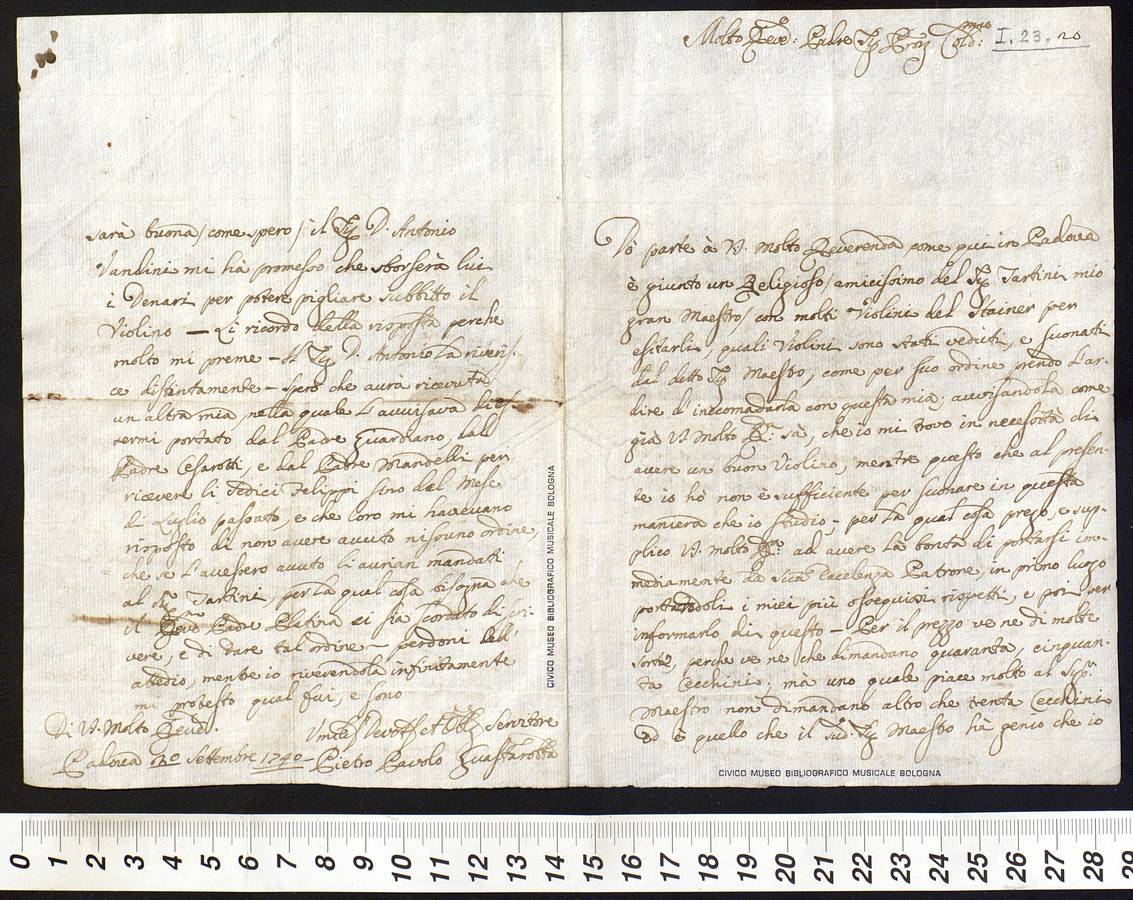 Molto Revd: Padre Sig Prõn Cold:mo
I. 23. 20
Dò parte à V. Molto Reverenda come qui in Padova
è giunto un Religioso / amicissimo del Sig Tartini mio
gran Maestro / con molti Violini del Stainer per
esitarli, quali Violini sono stati veduti, e suonati
dal detto Sig Maestro, come per suo ordine prendo l'ar-
dire d'incomodarla con questa mia; avvisandola come
già V. Molto Rª: sà, che io mi trovo in necessità di
avere un buon Violino, mentre questo che al presen-
te io hò non è sufficiente per suonare in questa
maniera che io studio; per la qual cosa prego, e sup-
plico V. Molto Rª ad avere la bontà di portarsi im-
mediamente da Sua Eccelenza Patrone, in primo luogo
portandoli i miei più ossequiosi rispetti, e poi per
informarlo di questo – Per il prezzo ve ne di molte
sorte, perche ve ne che dimandano quaranta, cinquan-
ta Cecchini; mà uno quale piace molto al Sigr
Maestro non dimandano altro che trenta Cecchini
ed è quello che il Sud. Sig Maestro hà genio che io
CIVICO MUSEO BIBLIOGRAFICO MUSICALE BOLOGNA
sarà buona / come spero / il Sig D. Antonio
Vandini mi hà promesso che sborserà lui
i Denari per potere pigliare subbito il
Violino – Li ricordo della risposta perche
molto mi preme – Il Sig D. Antonio La riveris.
ce distintamente – spero che avrà ricevuta
un altra mia nella quale L'avvisava di es-
sermi portato dal Padre Guardiano, dal
Padre Cesarotti, e dal Padre Mandelli per
ricevere li Sedici Felippi sino del Mese
di Luglio passato, e che loro mi havevano
risposto di non avere avuto nissuno ordine,
che se l'avessero avuto li avrian mandati
al Sig Tartini, per la qual cosa bisogna che
il Revmo Padre Platina si sia scordato di scri-
vere, e di dare tal ordine – perdoni dell'
attedio, mentre io riverendola infinitamente
mi protesto qual fui, e sono
Di V. Molto Revd.
Padova 20 Settembre 1740
Umiliss Devotiss et Obblig Servitore
Pietro Pavolo Guastarobba
CIVICO MUSEO BIBLIOGRAFICO MUSICALE BOLOGNA
0 1 2 3 4 5 6 7 8 9 10 11 12 13 14 15 16 17 18 19 20 21 22 23 24 25 26 27 28 29